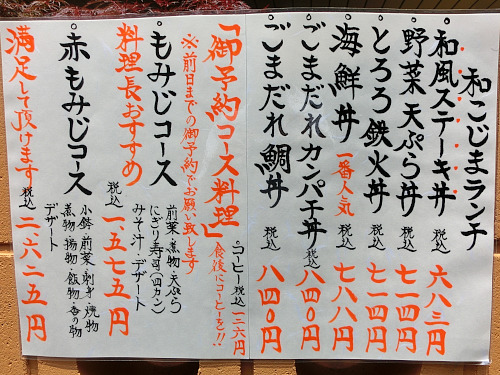 和こじまランチ
・和風ステーキ丼 税込 六八三円
・野菜天ぷら丼 税込 七一四円
・とろろ鉄火丼 税込 七一四円
・海鮮丼 一番人気 税込 七八八円
・ごまだれカンパチ丼 税込 八四〇円
・ごまだれ鯛丼 税込 八四〇円
・コーヒー 税込 一二六円
食後にコーヒーを!!
「御予約コース料理」
※前日までの御予約でお願い致します
・もみじコース
前菜・煮物・天ぷら
にぎり寿司(四カン)
みそ汁・デザート
料理長おすすめ 税込 一、五七五円
・赤もみじコース
小鉢・前菜・刺身・焼物
煮物・揚物・飯物・香の物
デザート
満足して頂けます 税込 二、六二五円